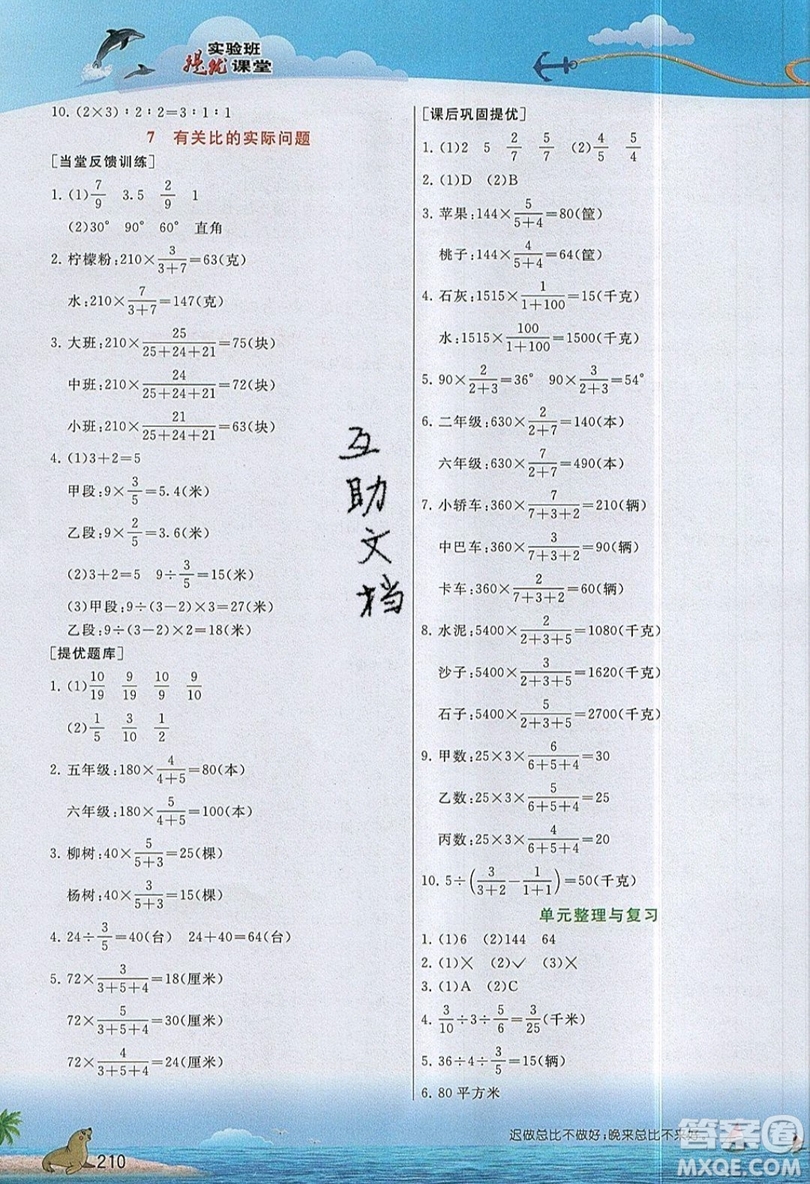 实验班
提优课堂
10. (2×3)∶2∶2=3∶1∶1
7 有关比的实际问题
[当堂反馈训练]
1. (1) 7/9 3.5 2/9 1
(2)30° 90° 60° 直角
2. 柠檬粉:210×3/(3+7)=63(克)
水:210×7/(3+7)=147(克)
3. 大班:210×25/(25+24+21)=75(块)
中班:210×24/(25+24+21)=72(块)
小班:210×21/(25+24+21)=63(块)
4. (1)3+2=5
甲段:9×3/5=5.4(米)
乙段:9×2/5=3.6(米)
(2)3+2=5 9÷3/5=15(米)
(3)甲段:9÷(3-2)×3=27(米)
乙段:9÷(3-2)×2=18(米)
[提优题库]
1. (1) 10/19 9/19 10/9 9/10
(2) 1/5 3/10 1/2
2. 五年级:180×4/(4+5)=80(本)
六年级:180×5/(4+5)=100(本)
3. 柳树:40×5/(5+3)=25(棵)
杨树:40×3/(5+3)=15(棵)
4. 24÷3/5=40(台) 24+40=64(台)
5. 72×3/(3+5+4)=18(厘米)
72×5/(3+5+4)=30(厘米)
72×4/(3+5+4)=24(厘米)
[课后巩固提优]
1. (1)2 5 2/7 5/7 (2) 4/5 5/4
2. (1)D (2)B
3. 苹果:144×5/(5+4)=80(筐)
桃子:144×4/(5+4)=64(筐)
4. 石灰:1515×1/(1+100)=15(千克)
水:1515×100/(1+100)=1500(千克)
5. 90×2/(2+3)=36° 90×3/(2+3)=54°
6. 二年级:630×2/(2+7)=140(本)
六年级:630×7/(2+7)=490(本)
7. 小轿车:360×7/(7+3+2)=210(辆)
中巴车:360×3/(7+3+2)=90(辆)
卡车:360×2/(7+3+2)=60(辆)
8. 水泥:5400×2/(2+3+5)=1080(千克)
沙子:5400×3/(2+3+5)=1620(千克)
石子:5400×5/(2+3+5)=2700(千克)
9. 甲数:25×3×6/(6+5+4)=30
乙数:25×3×5/(6+5+4)=25
丙数:25×3×4/(6+5+4)=20
10. 5÷(3/(3+2)-1/(1+1))=50(千克)
单元整理与复习
1. (1)6 (2)144 64
2. (1)× (2)✓ (3)×
3. (1)A (2)C
4. 3/10÷3÷5/6=3/25(千米)
5. 36÷4÷3/5=15(辆)
6. 80 平方米
互助文档
迟做总比不做好;晚来总比不来好
210
答案圈
MXQE.COM